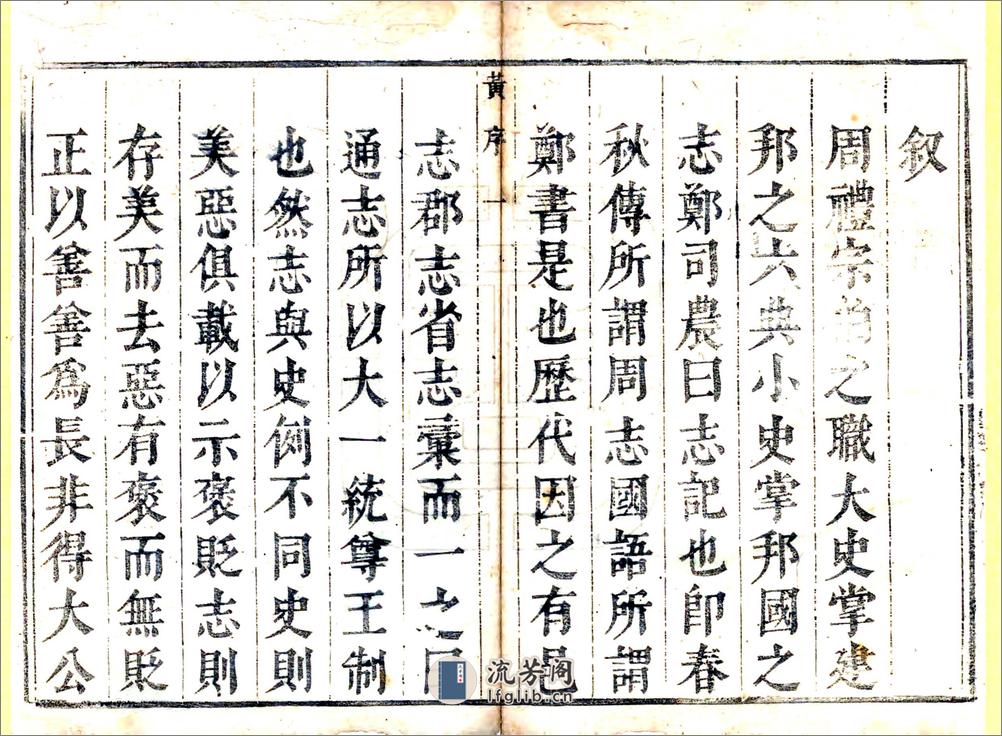 叙
周禮宗伯之職大史掌建
邦之六典小史掌邦國之
志鄭司農曰志記也即春
秋傳所謂周志國語所謂
鄭書是也歷代因之有邑
黃序 一
志郡志省志彙而一之曰
通志所以大一統尊王制
也然志與史例不同史則
美惡俱載以示褒貶志則
存美而去惡有褒而無貶
正以善善為長非得大公
流芳阁
lfglib.cn